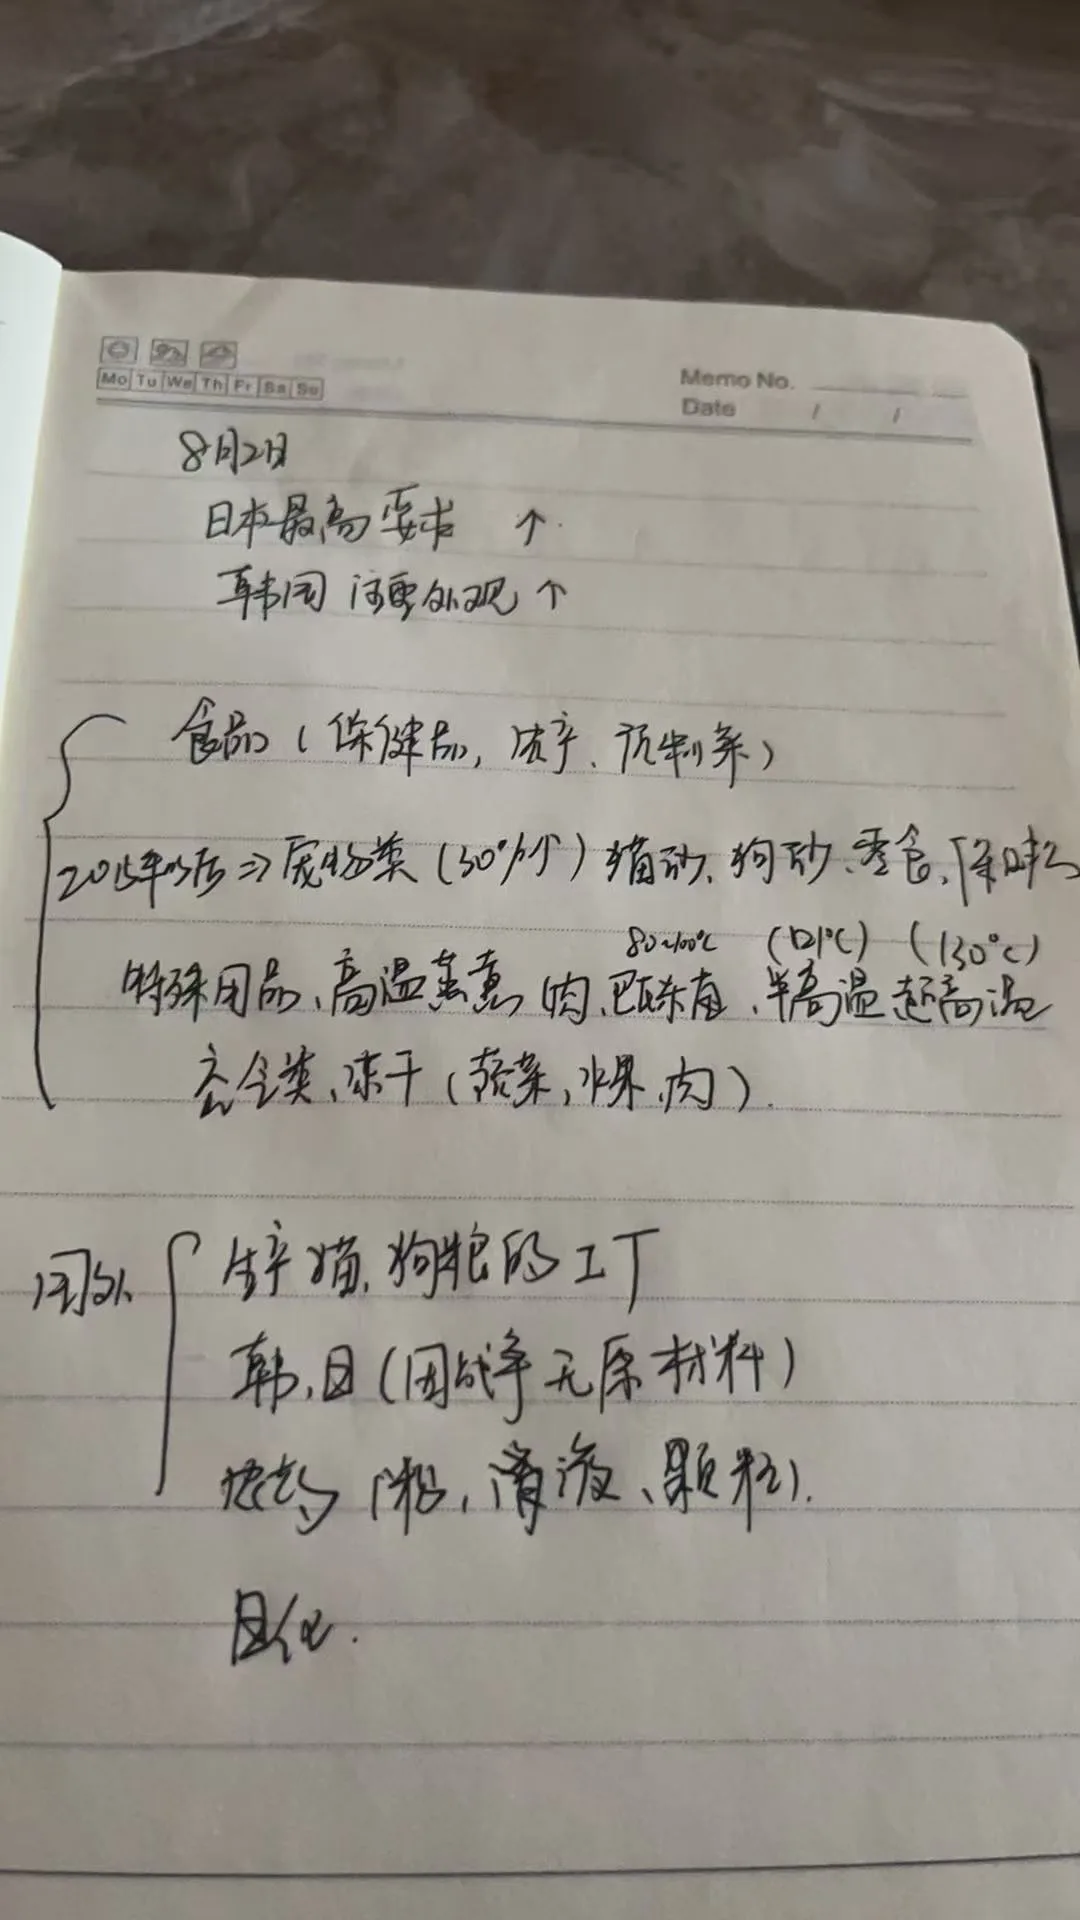 Mo Tu We Th Fr Sa Su
Memo No.
Date / /
8月2日
日本最高要求 ↑
韩国 注重外观 ↑
食品(保健品, 水产、预制菜)
2015年以后⇒宠物类(30%个)猫砂、狗砂、零食、除味
80~100℃ (121℃) (130℃)
特殊用品、高温蒸煮 肉、巴氏杀菌、半高温 超高温
冻干(蔬菜, 水果, 肉)
国外
生产猫、狗粮的工厂
韩、日(因战争无原材料)
(粉, 膏, 液、颗粒)